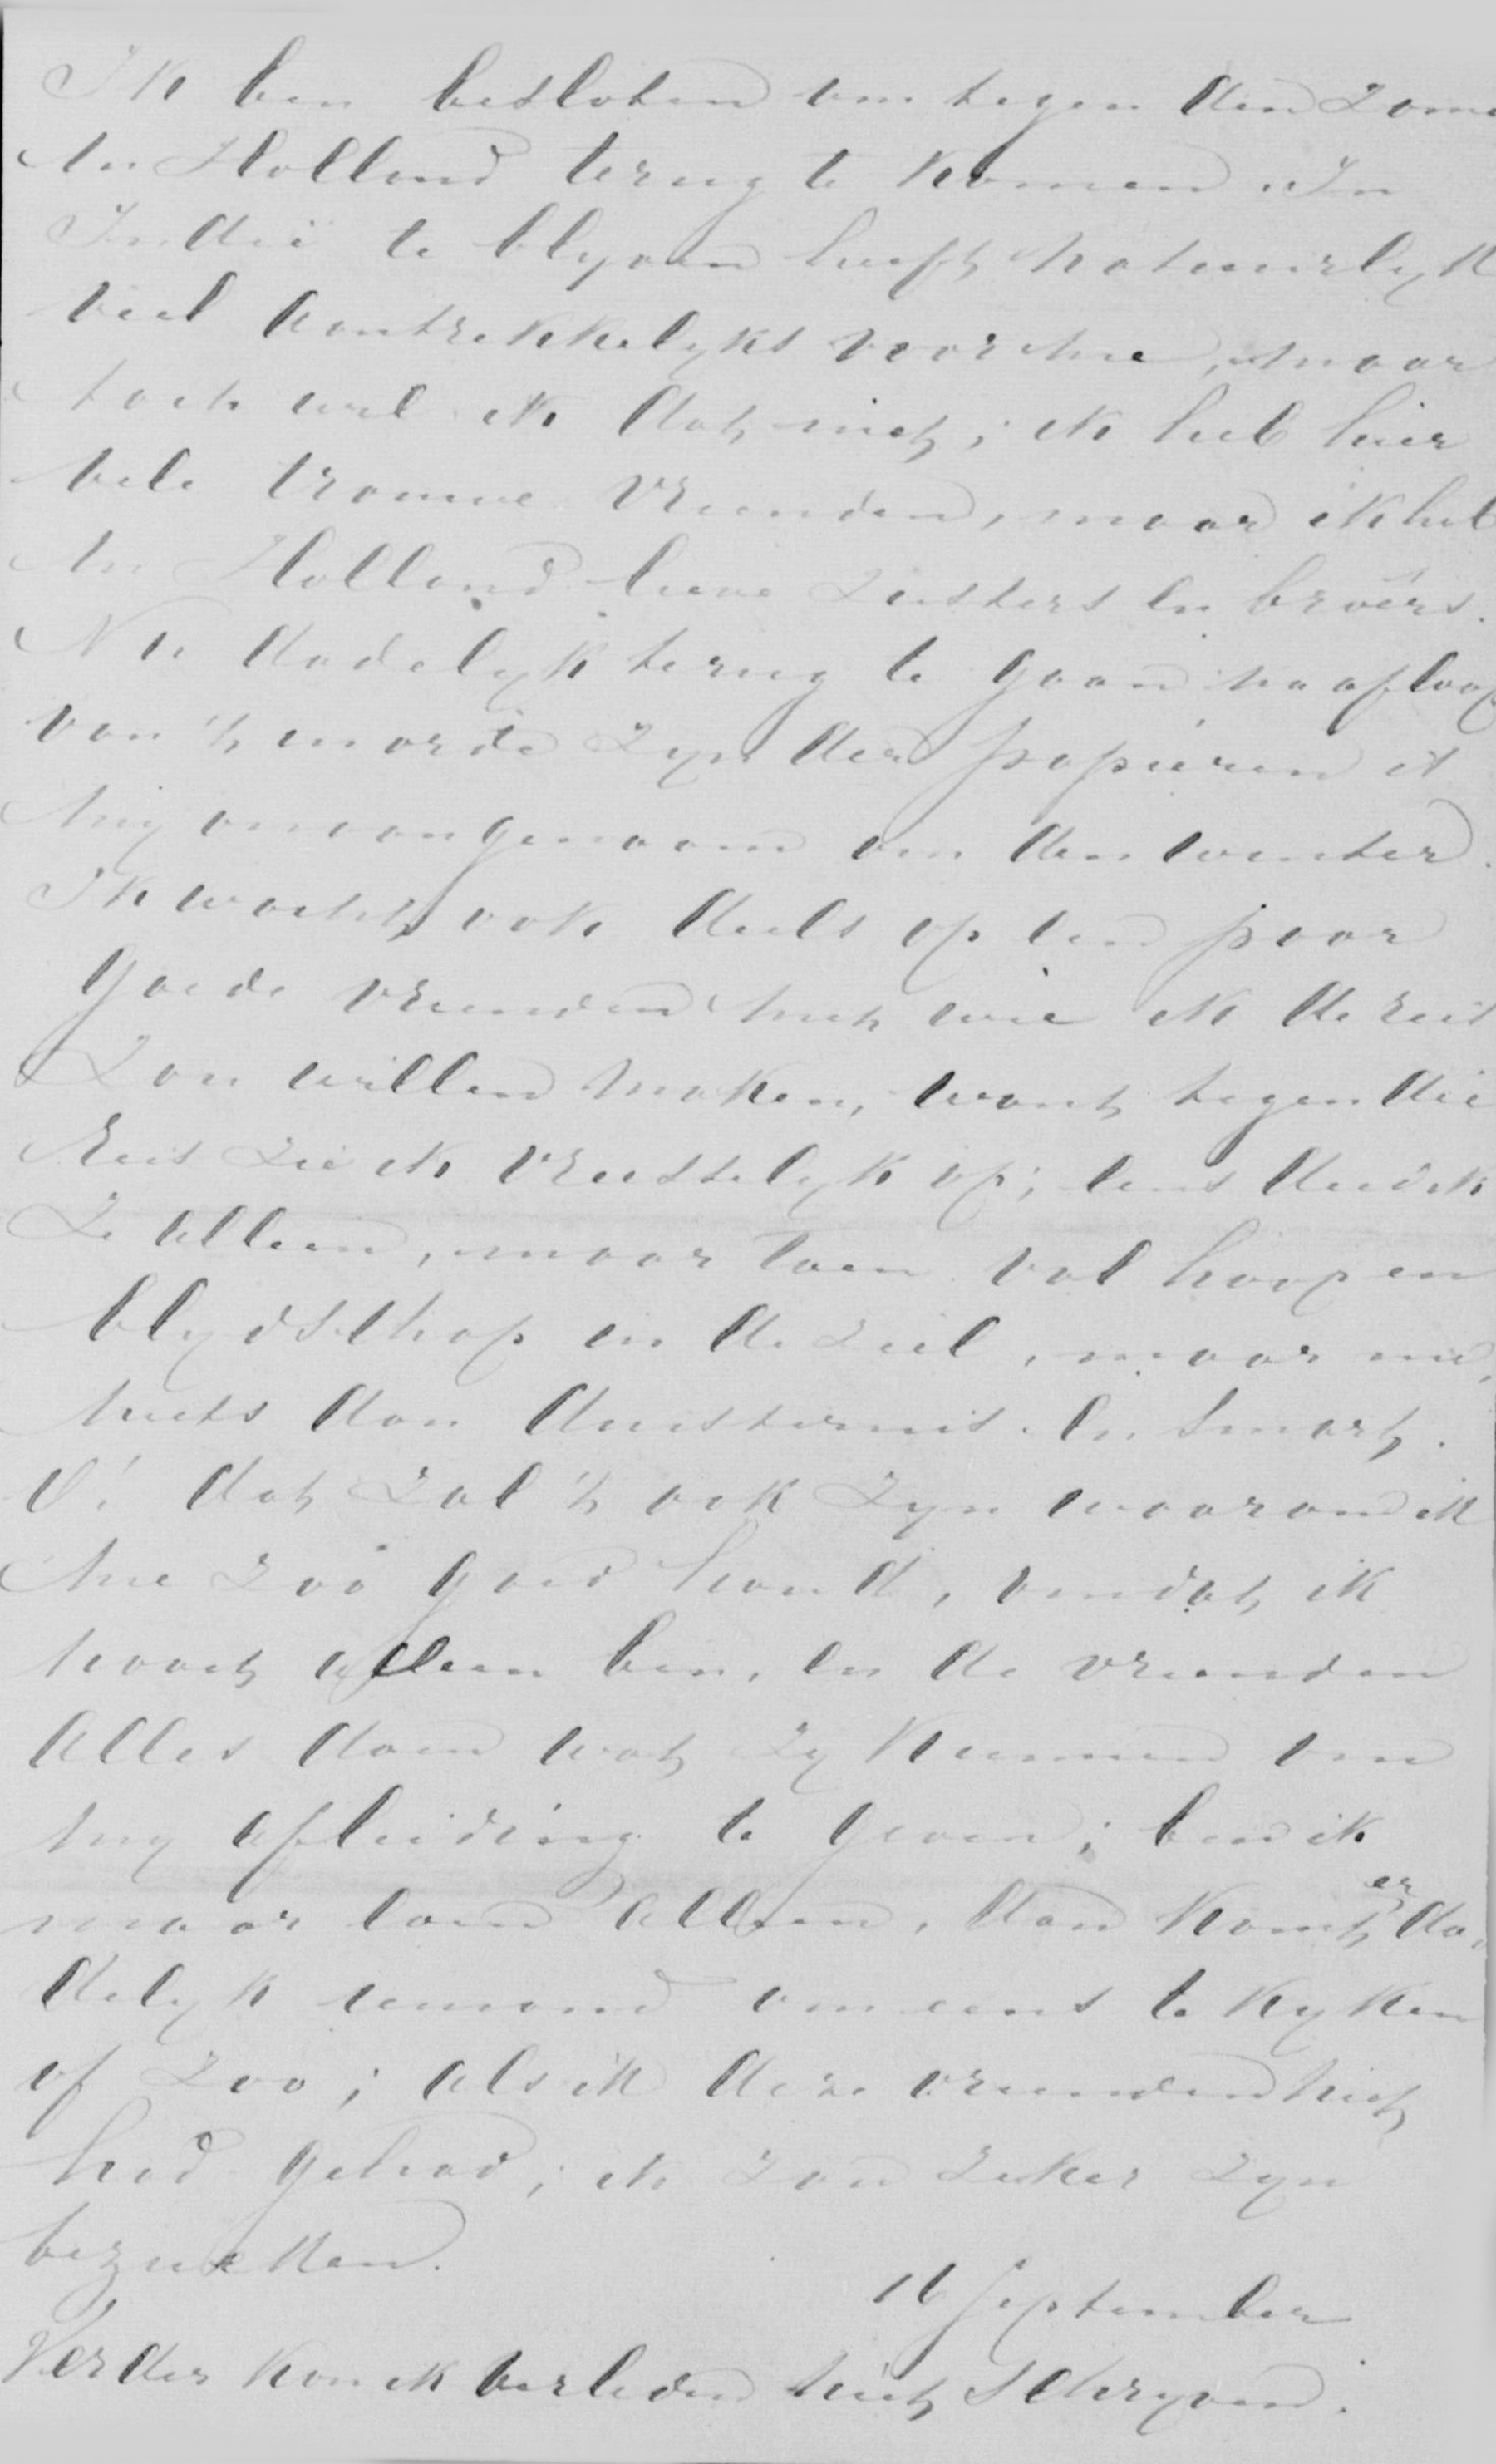 Ik ben besloten om tegen den Zome
in Holland terug te komen. In
Indië te blyven heeft natuurlyk
veel aantrekkelyks voor me, maar
toch wil ik dat niet; ik heb hier
vele trouwe vrienden, maar ik heb
in Holland lieve Zusters en broêrs.
Nu dadelyk terug te gaan na afloop
van 't in orde Zyn der papieren is
my onaangenaam om den winter.
Ik wacht ook deels op een paar
goede vrienden met wie ik de reis
Zou willen maken, want tegen die
Reis Zie ik vreeselyk op; eens deed ik
Ze alleen, maar toen vol hoop en
blydschap in de Ziel, maar nu,
niets dan duisternis en Smart.
O! dat Zal 't ook Zyn waarom ik
me Zoo goed houd, omdat ik
nooit alleen ben, en de vrienden
alles doen wat Zy kunnen om
my afleiding te geven; ben ik
maar even alleen, dan komt er da-
delyk iemand om eens te kyken
of Zoo; als ik deze vrienden niet
had gehad, ik Zou Zeker Zyn
bezweken.
16 September
Verder kon ik verleden niet Schryven.